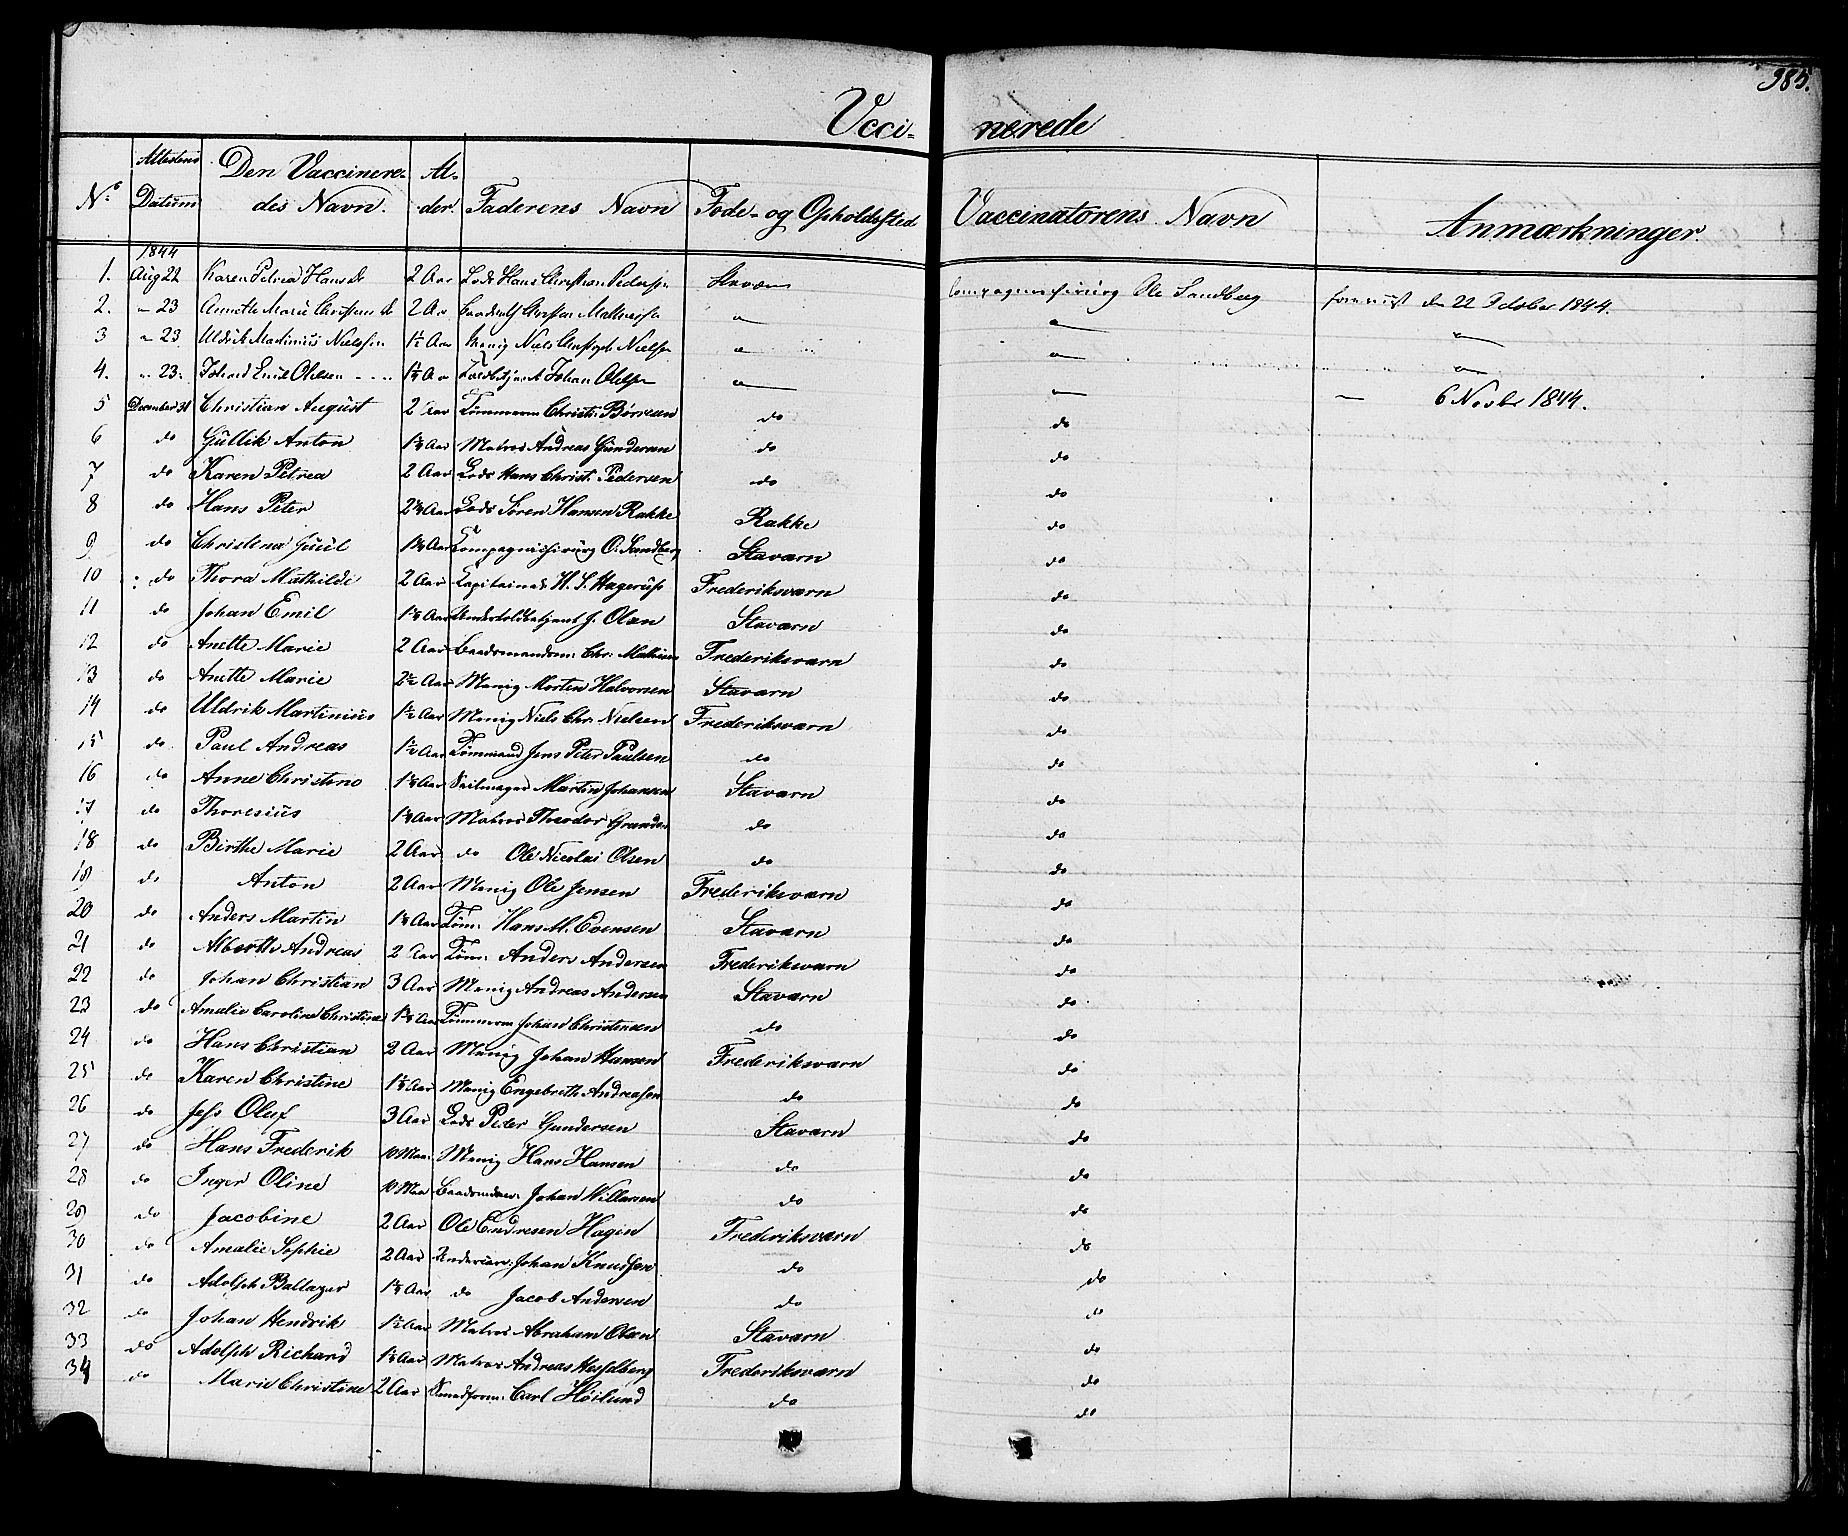 385.
Vcci= nerede
No Attestens Datum Den Vaccinere= des Navn. Al= der. Faderens Navn Føde- og Opholdssted Vaccinatorens Navn Anmærkninger.
1844
1. Aug 22 Karen Petrea Hansd 2 Aar Lods Hans Christian Pedersen Staværn Compagniechirurg Ole Sandberg forevist den 22 October 1844.
2. " 23 Annette Marie 2 Aar " " "
3 " 23 Uldrik Martinius Nielsen 1½ Aar Menig Niels Christoph Nielsen " " "
4. " 23. Johand Emil Olesen 1¾ Aar Johan Olesen " " — 6 Novbr 1844.
5 December 31 Christian August 2 Aar Tømmerm Christ: Børresen do do
6 do Gullik Anton Aar Matros Andreas Gundersen do do
7 do Karen Petrea 2 Aar Lods Hans Christ: Pedersen do do
8 do Hans Peter Aar Lods Søren Hansen Rakke Rakke do
9 do Christena Juul Aar Compagnichirurg O. Sandberg Staværn do
10 do Thora Mathilde 2 Aar Capitaine H. S. Hagerup Frederiksværn do
11 do Johan Emil Aar Undertoldbetjent J. Olsen Staværn do
12 do Anette Marie 2 Aar Baadsmandsm: Chr. Frederiksværn do
13 do Anette Marie 2½ Aar Menig Morten Halvorsen Staværn do
14 do Uldrik Martinius 1½ Aar Menig Niels Chr. Nielsen Frederiksværn do
15 do Paul Andreas 1½ Aar Tømmand Jens Peter Paulsen do do
16 do Anne Christine Aar Seilmager Martin Johansen Staværn do
17 do Thoresius Aar Matros Theodor do do
18 do Birthe Marie 2 Aar do Ole Nicolai Olsen do do
19 do Anton 2 Aar Menig Ole Jensen Frederiksværn do
20 do Anders Martin Aar Tøm: Hans M. Evensen Staværn do
21 do Alberth Andreas 2 Aar Tøm: Anders Andersen Frederiksværn do
22 do Johan Christian 3 Aar Menig Andreas Andersen Staværn do
23 do Amalie Caroline Christine Aar Tømmerm Johan Christensen do do
24 do Hans Christian 2 Aar Menig Johan Hansen Frederiksværn do
25 do Karen Christine Aar Menig Engebreth Andreasen do do
26 do Jess Oluf 3 Aar Lods Peter Gundersen Staværn do
27 do Hans Frederik 10 Maa: Menig Hans Hansen do do
28 do Inger Oline 10 Maa Baadsmdsm: Johan Willassen do do
29 do Jacobine 2 Aar Ole Endresen Hagen Frederiksværn do
30 do Amalie Sophie 2 Aar Johan Knudsen do do
31 do Adolph Baltazar Aar do Jacob Andersen do do
32 do Johan Hendrik 1½ Aar Matros Abraham Olsen Staværn do
33 do Adolph Richard Aar Matros Andreas Hesselberg Frederiksværn do
34 do Marie Christine 2 Aar Carl Høilund do do